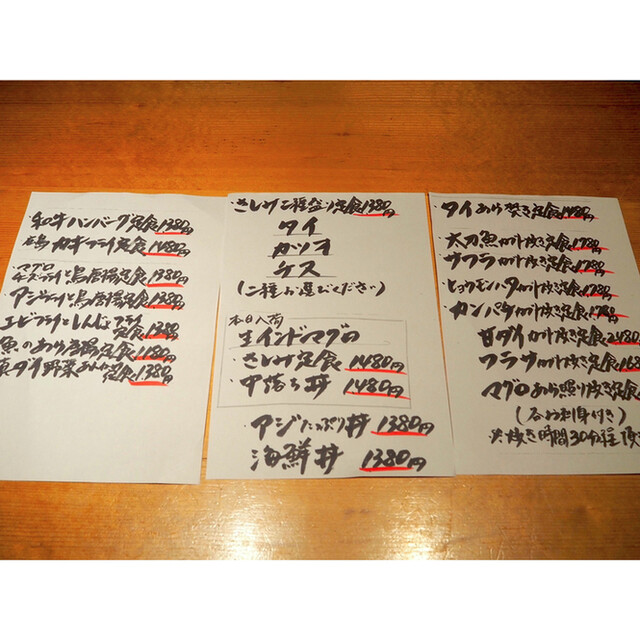 ・和牛ハンバーグ定食1380円
カキフライ定食1480円
・マグロ
チーズフライと鳥唐揚定食1380円
・アジフライと鳥唐揚定食1380円
エビフライとしんじょフライ
定食1380円
魚のあら湯定食1180円
定食1380円
・さしみ二種盛り定食1380円
タイ
カツオ
(二種お選びください)
本日入荷
生インドマグロ
・さしみ定食1480円
・中落ち丼1480円
・アジたっぷり丼1380円
海鮮丼1380円
・タイあら焚き定食1480円
・太刀魚かけ炊き定食1780円
・サワラかけ炊き定食1780円
・ヒョウモンハタかけ炊き定食1780円
・カンパチかけ炊き定食1780円
甘ダイかけ炊き定食2480
ワラサかけ炊き定食168
マグロあら照り炊き定食
(各お刺身付き)
※炊き時間30分程頂